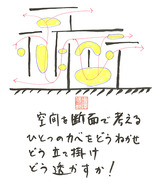 空間を断面で考える
ひとつのカベをどうねかせ
どう立て掛け
どう透かすか!